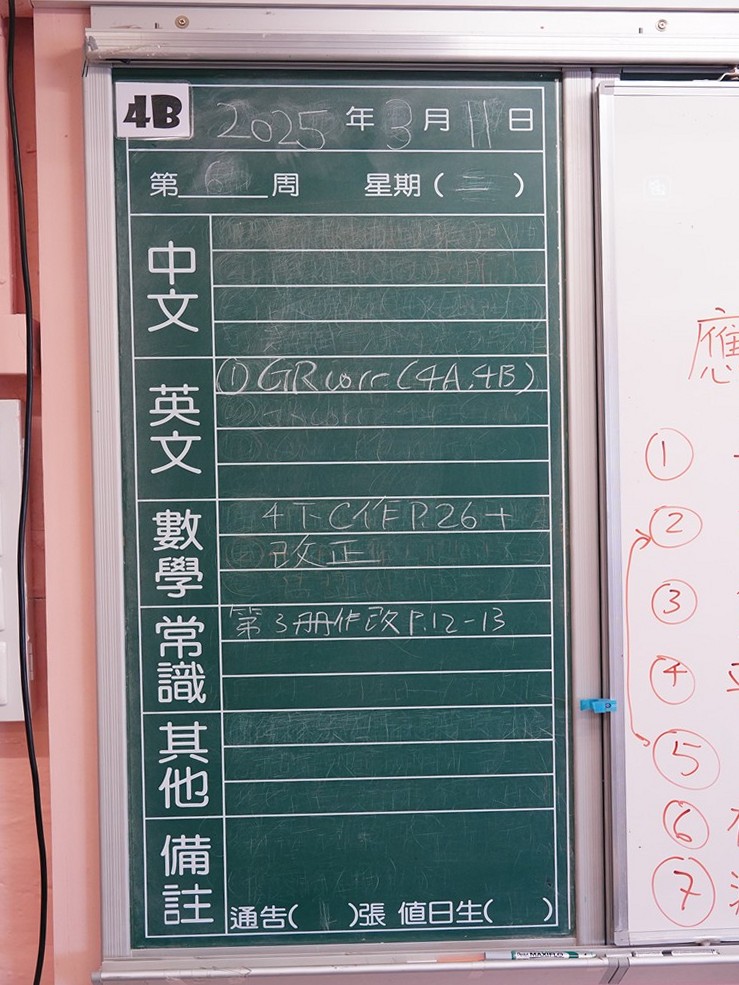 4B
2025 年 3 月 11 日
第 6 周 星期 ( 二 )
中文
英文
① GR corr (4A, 4B)
數學
4下C作 P.26+
改正
常識
第3冊作改 P.12-13
其他
備註
通告( )張 值日生( )
應
①
②
③
④
⑤
⑥
⑦
MAXIFLO